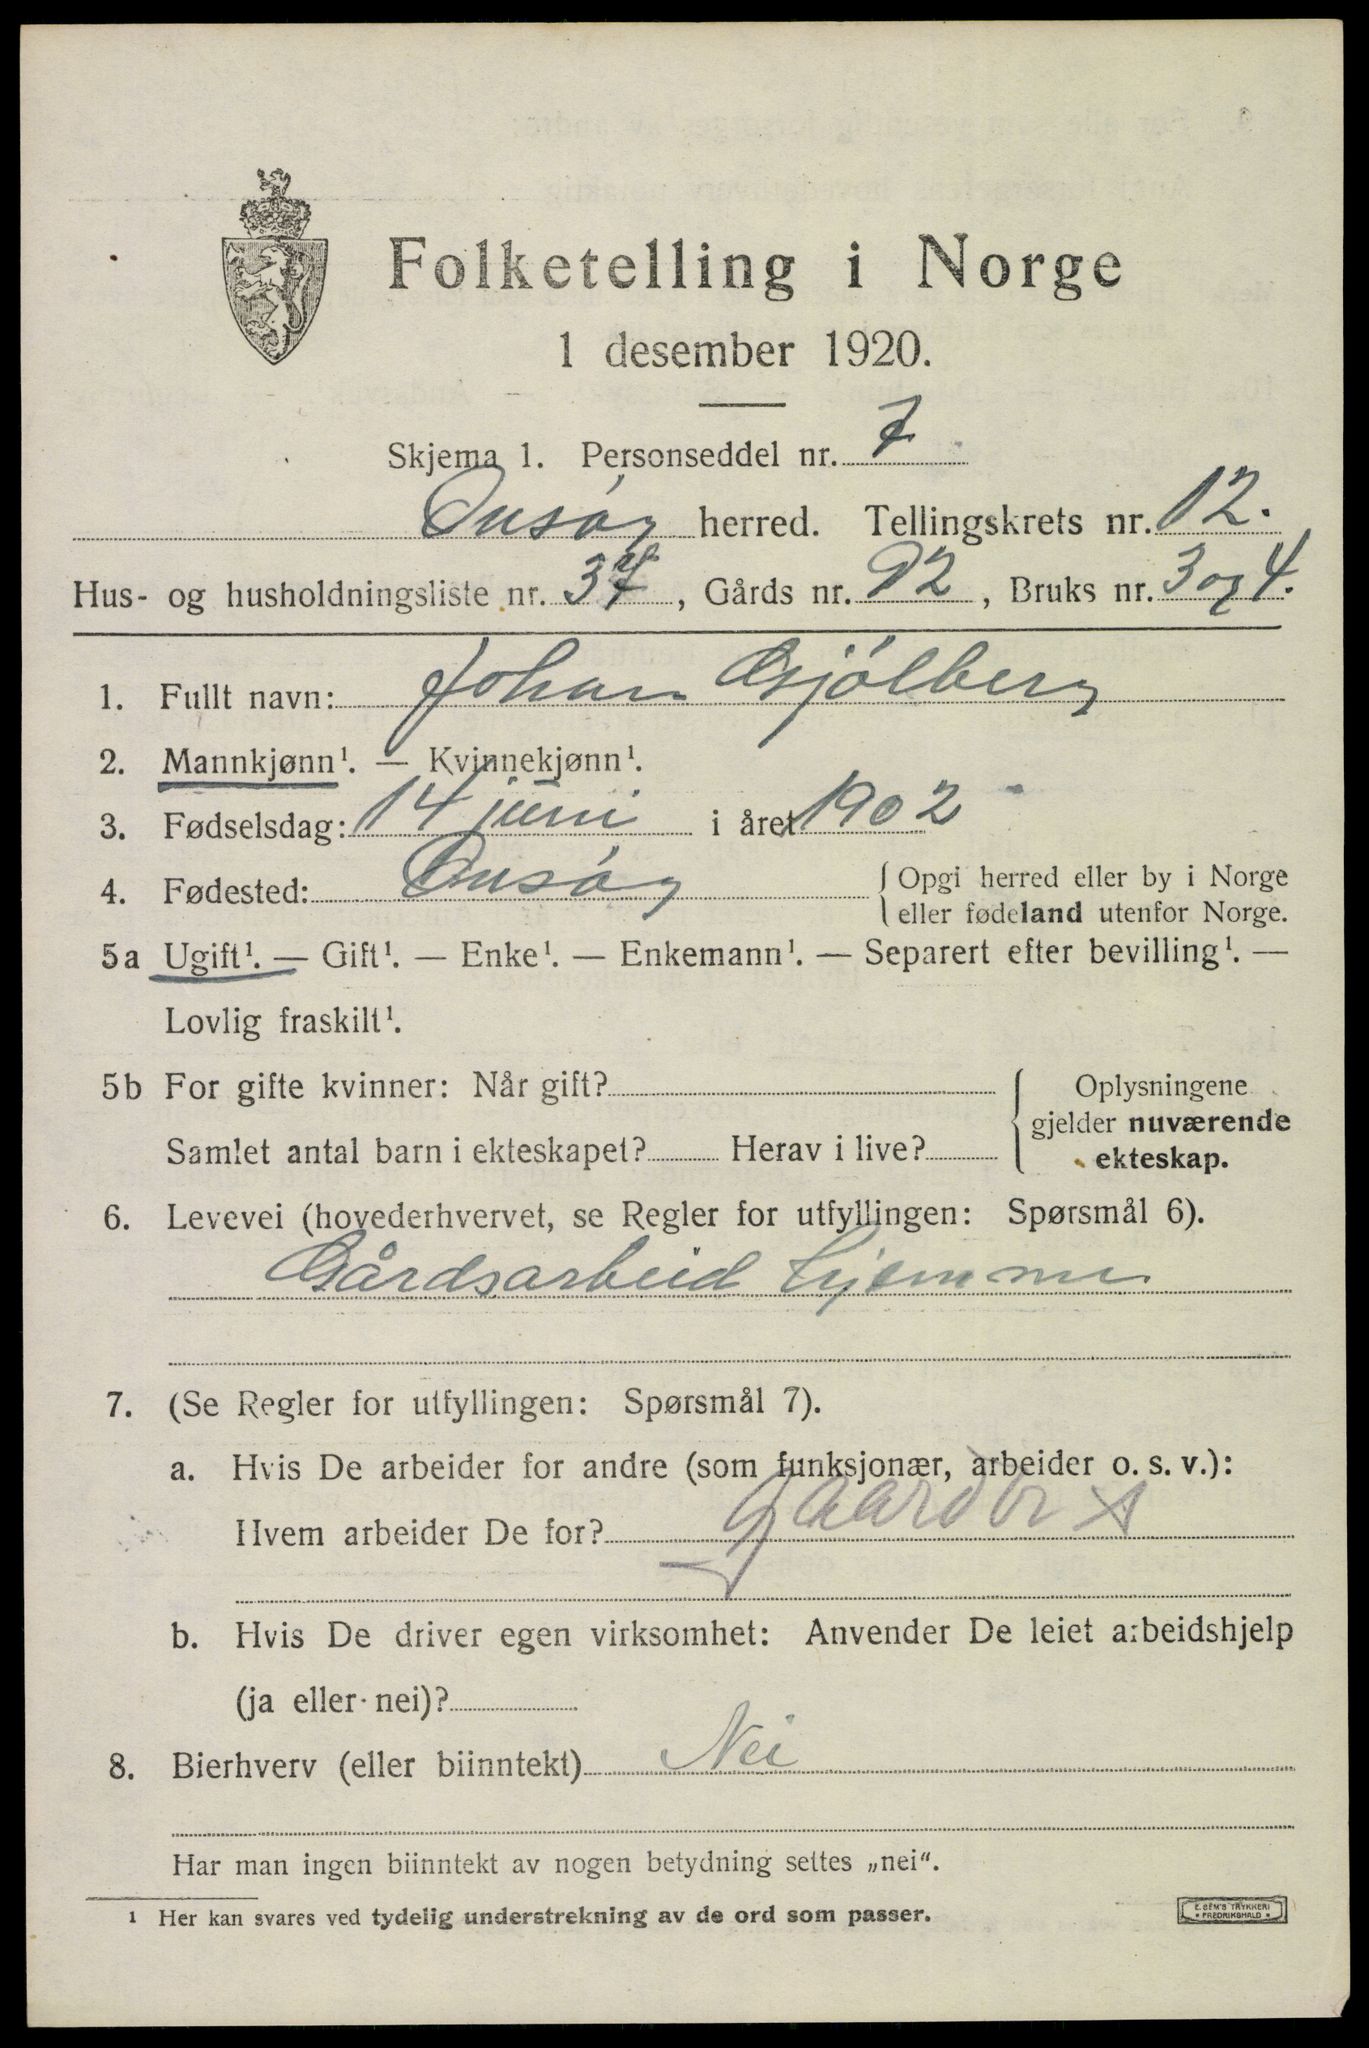 Folketelling i Norge
1 desember 1920.
Skjema 1. Personseddel nr. 7
Onsøy herred. Tellingskrets nr. 12.
Hus- og husholdningsliste nr. 34, Gårds nr. 92, Bruks nr. 3 og 4.
1. Fullt navn: Johan Gjølberg
2. Mannkjønn¹. — Kvinnekjønn¹.
3. Fødselsdag: 14 juni i året 1902
4. Fødested: Onsøy { Opgi herred eller by i Norge
eller fødeland utenfor Norge.
5a Ugift¹. — Gift¹. — Enke¹. — Enkemann¹. — Separert efter bevilling¹. —
Lovlig fraskilt¹.
5b For gifte kvinner: Når gift? { Oplysningene
gjelder nuværende
Samlet antal barn i ekteskapet? Herav i live? ekteskap.
6. Levevei (hovederhvervet, se Regler for utfyllingen: Spørsmål 6).
Gårdsarbeid hjemme
7. (Se Regler for utfyllingen: Spørsmål 7).
a. Hvis De arbeider for andre (som funksjonær, arbeider o. s. v.):
Hvem arbeider De for?
b. Hvis De driver egen virksomhet: Anvender De leiet arbeidshjelp
(ja eller nei)?
8. Bierhverv (eller biinntekt) Nei
Har man ingen biinntekt av nogen betydning settes „nei“.
¹ Her kan svares ved tydelig understrekning av de ord som passer.
E. SEM'S TRYKKERI
FREDRIKSHALD